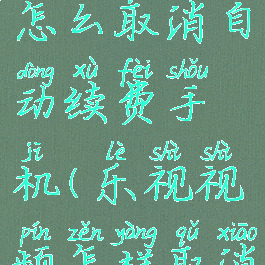 怎么取消自
dòng xù fèi shǒu
动续费手
jī lè shì shì
机(乐视视
pín zěn yàng qǔ xiāo
频怎样取消